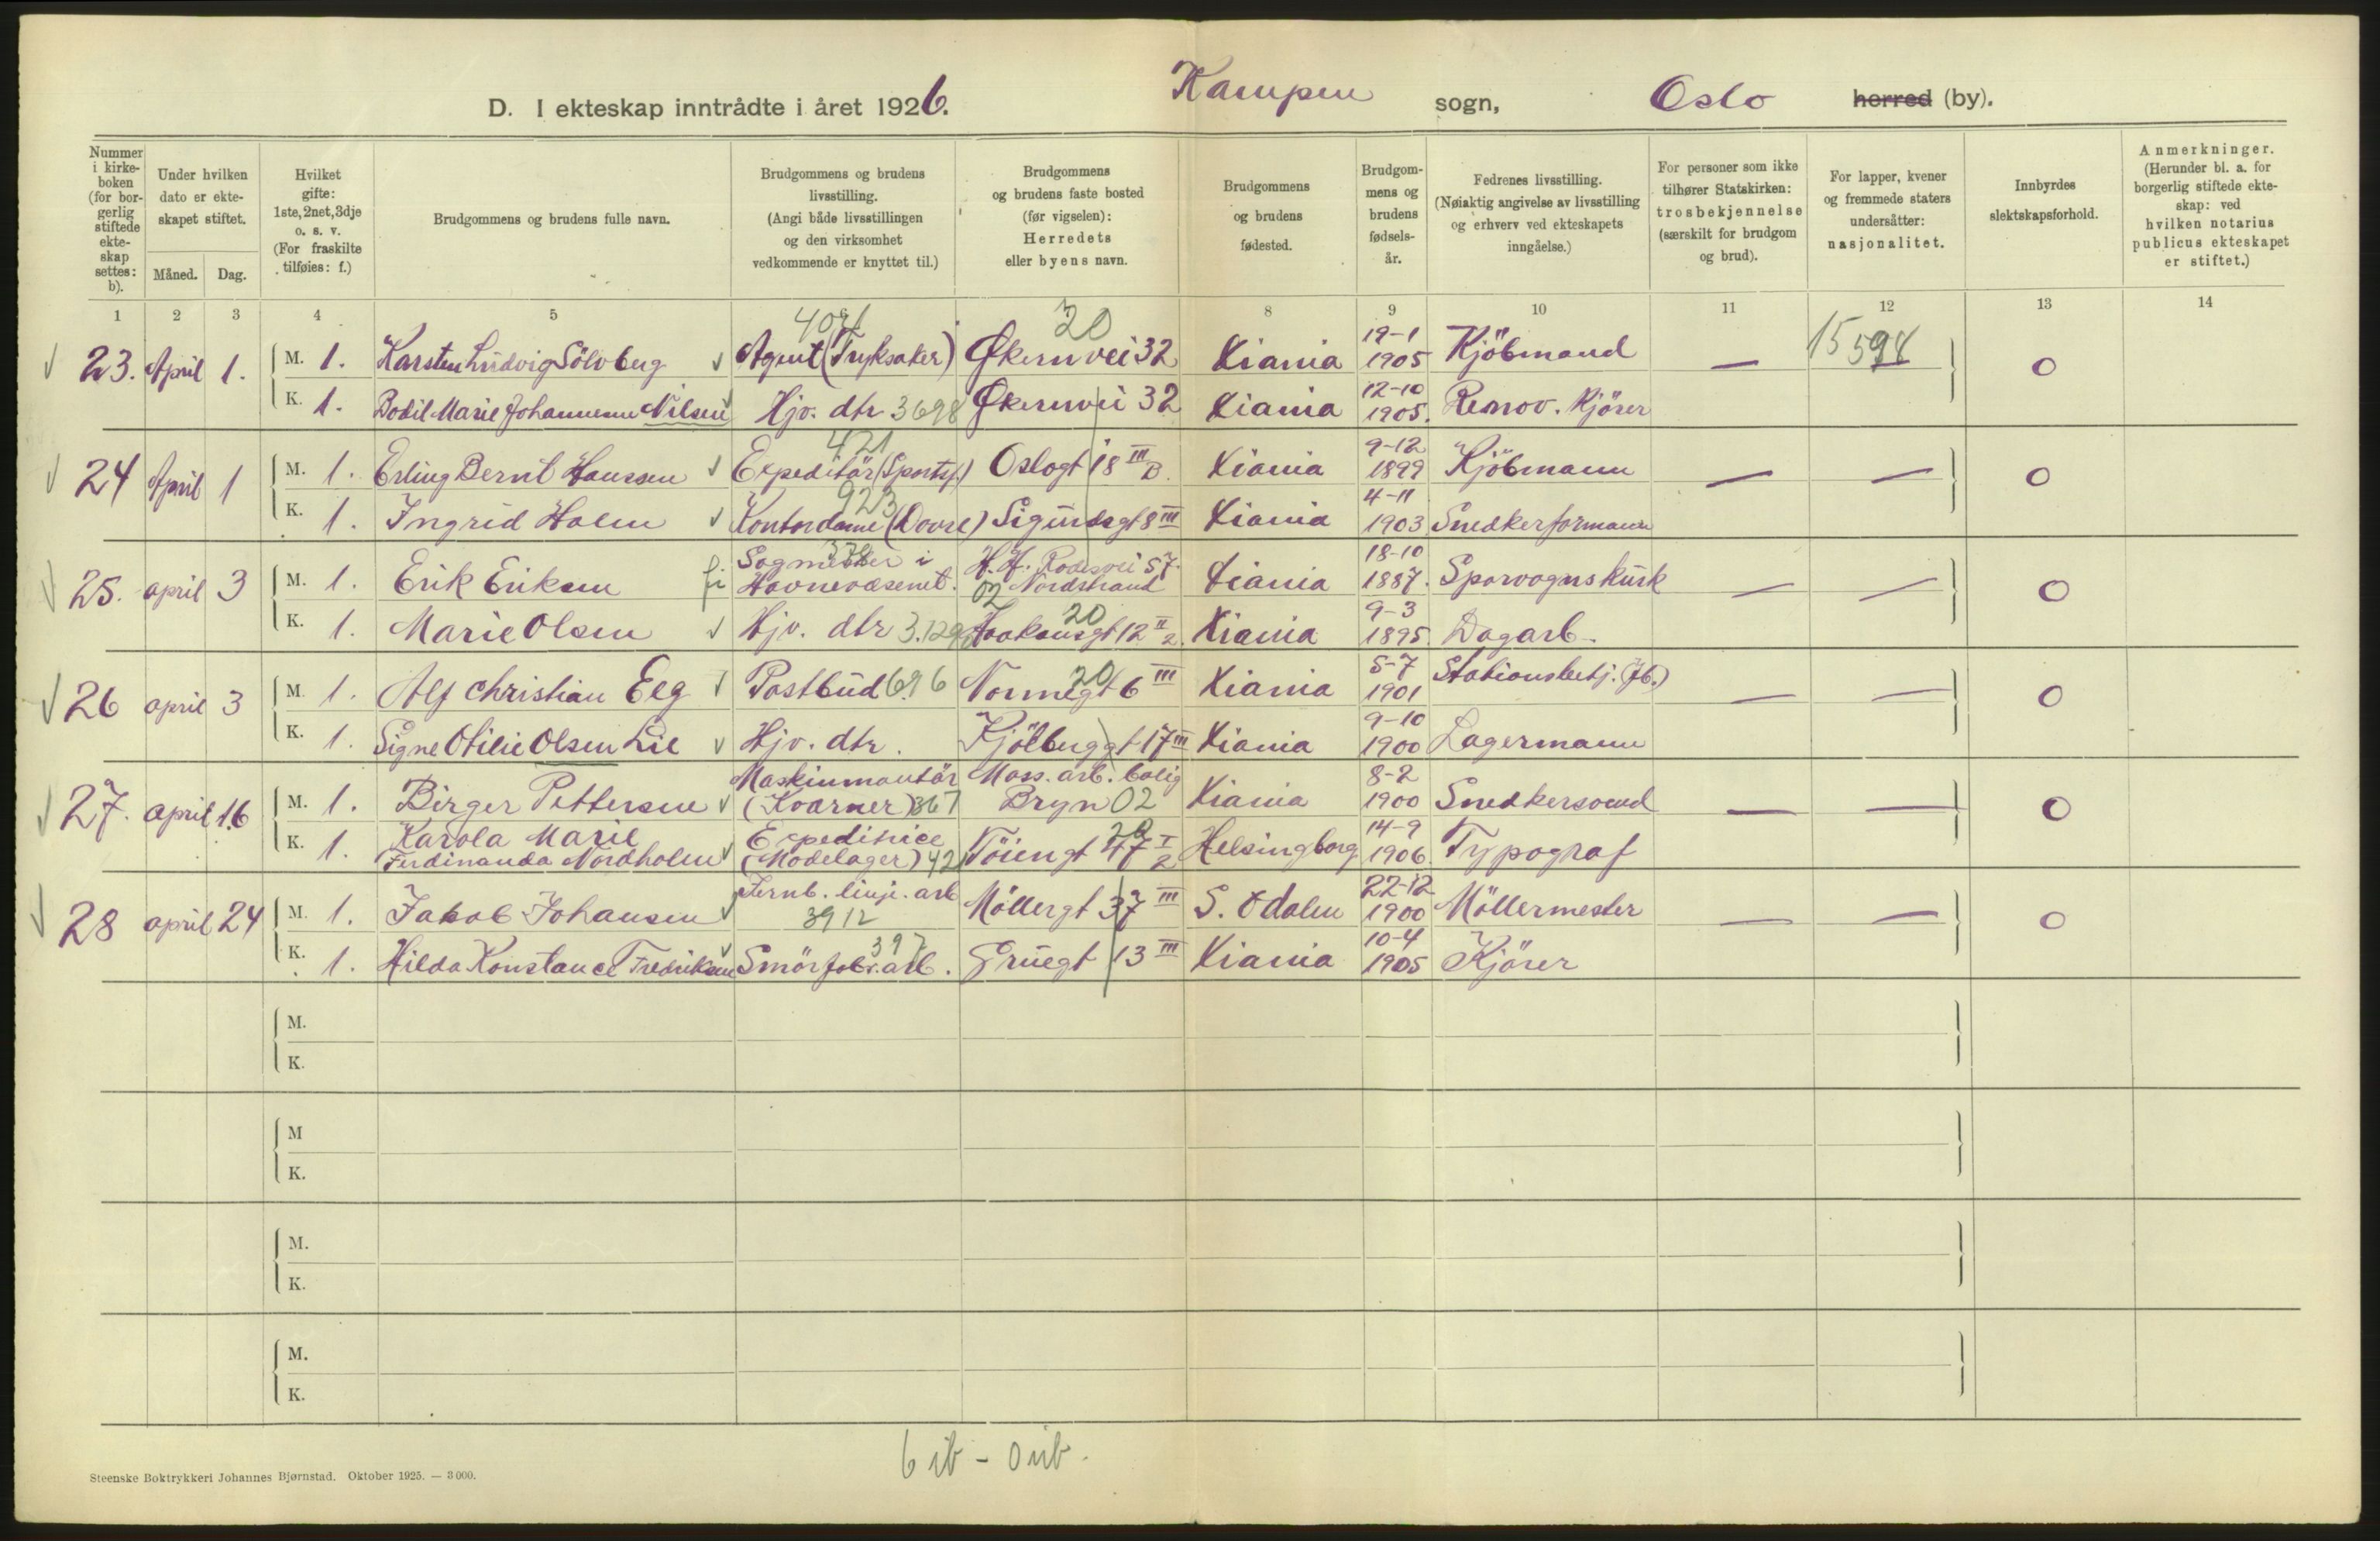 D. I ekteskap inntrådte i året 1926. Kampen sogn, Oslo herred (by).
Nummer i kirke- boken (for bor- gerlig stiftede ekte- skap settes: b).
Under hvilken dato er ekte- skapet stiftet.
Måned. Dag.
Hvilket gifte: 1ste, 2net, 3dje o. s. v. (For fraskilte tilføies: f.)
Brudgommens og brudens fulle navn.
Brudgommens og brudens livsstilling. (Angi både livsstillingen og den virksomhet vedkommende er knyttet til.)
Brudgommens og brudens faste bosted (før vigselen): Herredets eller byens navn.
Brudgommens og brudens fødested.
Brudgom- mens og brudens fødsels- år.
Fedrenes livsstilling. (Nøiaktig angivelse av livsstilling og erhverv ved ekteskapets inngåelse.)
For personer som ikke tilhører Statskirken: trosbekjennelse (særskilt for brudgom og brud).
For lapper, kvener og fremmede staters undersåtter: nasjonalitet.
Innbyrdes slektskapsforhold.
Anmerkninger. (Herunder bl. a. for borgerlig stiftede ekte- skap: ved hvilken notarius publicus ekteskapet er stiftet.)
1 2 3 4 5 8 9 10 11 12 13 14
23. April 1. M. 1. Karsten Ludvig Sölvberg Agent (Tryksaker) Økernvei 32 20 Kiania 19-1 1905 Kjöbmand — 15 594 0
K. 1. Bodil Marie Johannesen Nilsen Hjv. dtr 3698 Økernvei 32 Kiania 12-10 1905. Renov. Kjörer
24 April 1 M. 1. Erling Bernt Hanssen Expeditör (Sportsf.) 421 Oslogt 18 III B. Kiania 9-12 1899 Kjöbmann — — 0
K. 1. Ingrid Holm Kontordame (Dovre) 923 Sigurdsgt 8 III Kiania 4-11 1903 Snedkerformann
25. april 3 M. 1. Erik Eriksen Sagmester i Havnevæsenet. H. H. Rodesvei 57. 02 Nordstrand Kiania 18-10 1887. Sporvognskusk — — 0
K. 1. Marie Olsen Hjv. dtr 3.129 Haakonsgt 12 II 2 20 Kiania 9-3 1895. Dagarb.
26 april 3 M. 1. Alf Christian Eeg Postbud 696 Normegt 6 III 20 Kiania 5-7 1901 Stationsbetj. (Jb.) — — 0
K. 1. Signe Otilie Olsen Lie Hjv. dtr. Kjölberggt 17 III Kiania 9-10 1900 Lagermann
27. april 16 M. 1. Birger Pettersen Maskinmontör (Kværner) 367 Mass. arb. bolig Bryn 02 Kiania 8-2 1900 Snedkersvend — — 0
K. 1. Karola Marie Ferdinanda Nordholm Expeditrice (Modelager) 421 Töiengt 47 I 2 20 Helsingborg 14-9 1906. Typograf
28 april 24 M. 1. Jakob Johansen Jernb. linje. arb 3912 Möllergt 37 III S. Odalen 22-12 1900 Möllermester — — 0
K. 1. Hilda Konstance Fredriksen Smörfabr. arb. 397 Gruegt 13 III Kiania 10-4 1905 Kjörer
M.
K.
M
K.
M.
K.
M.
K.
6 ib - 0 uib.
Steenske Boktrykkeri Johannes Bjørnstad. Oktober 1925. — 3 000.